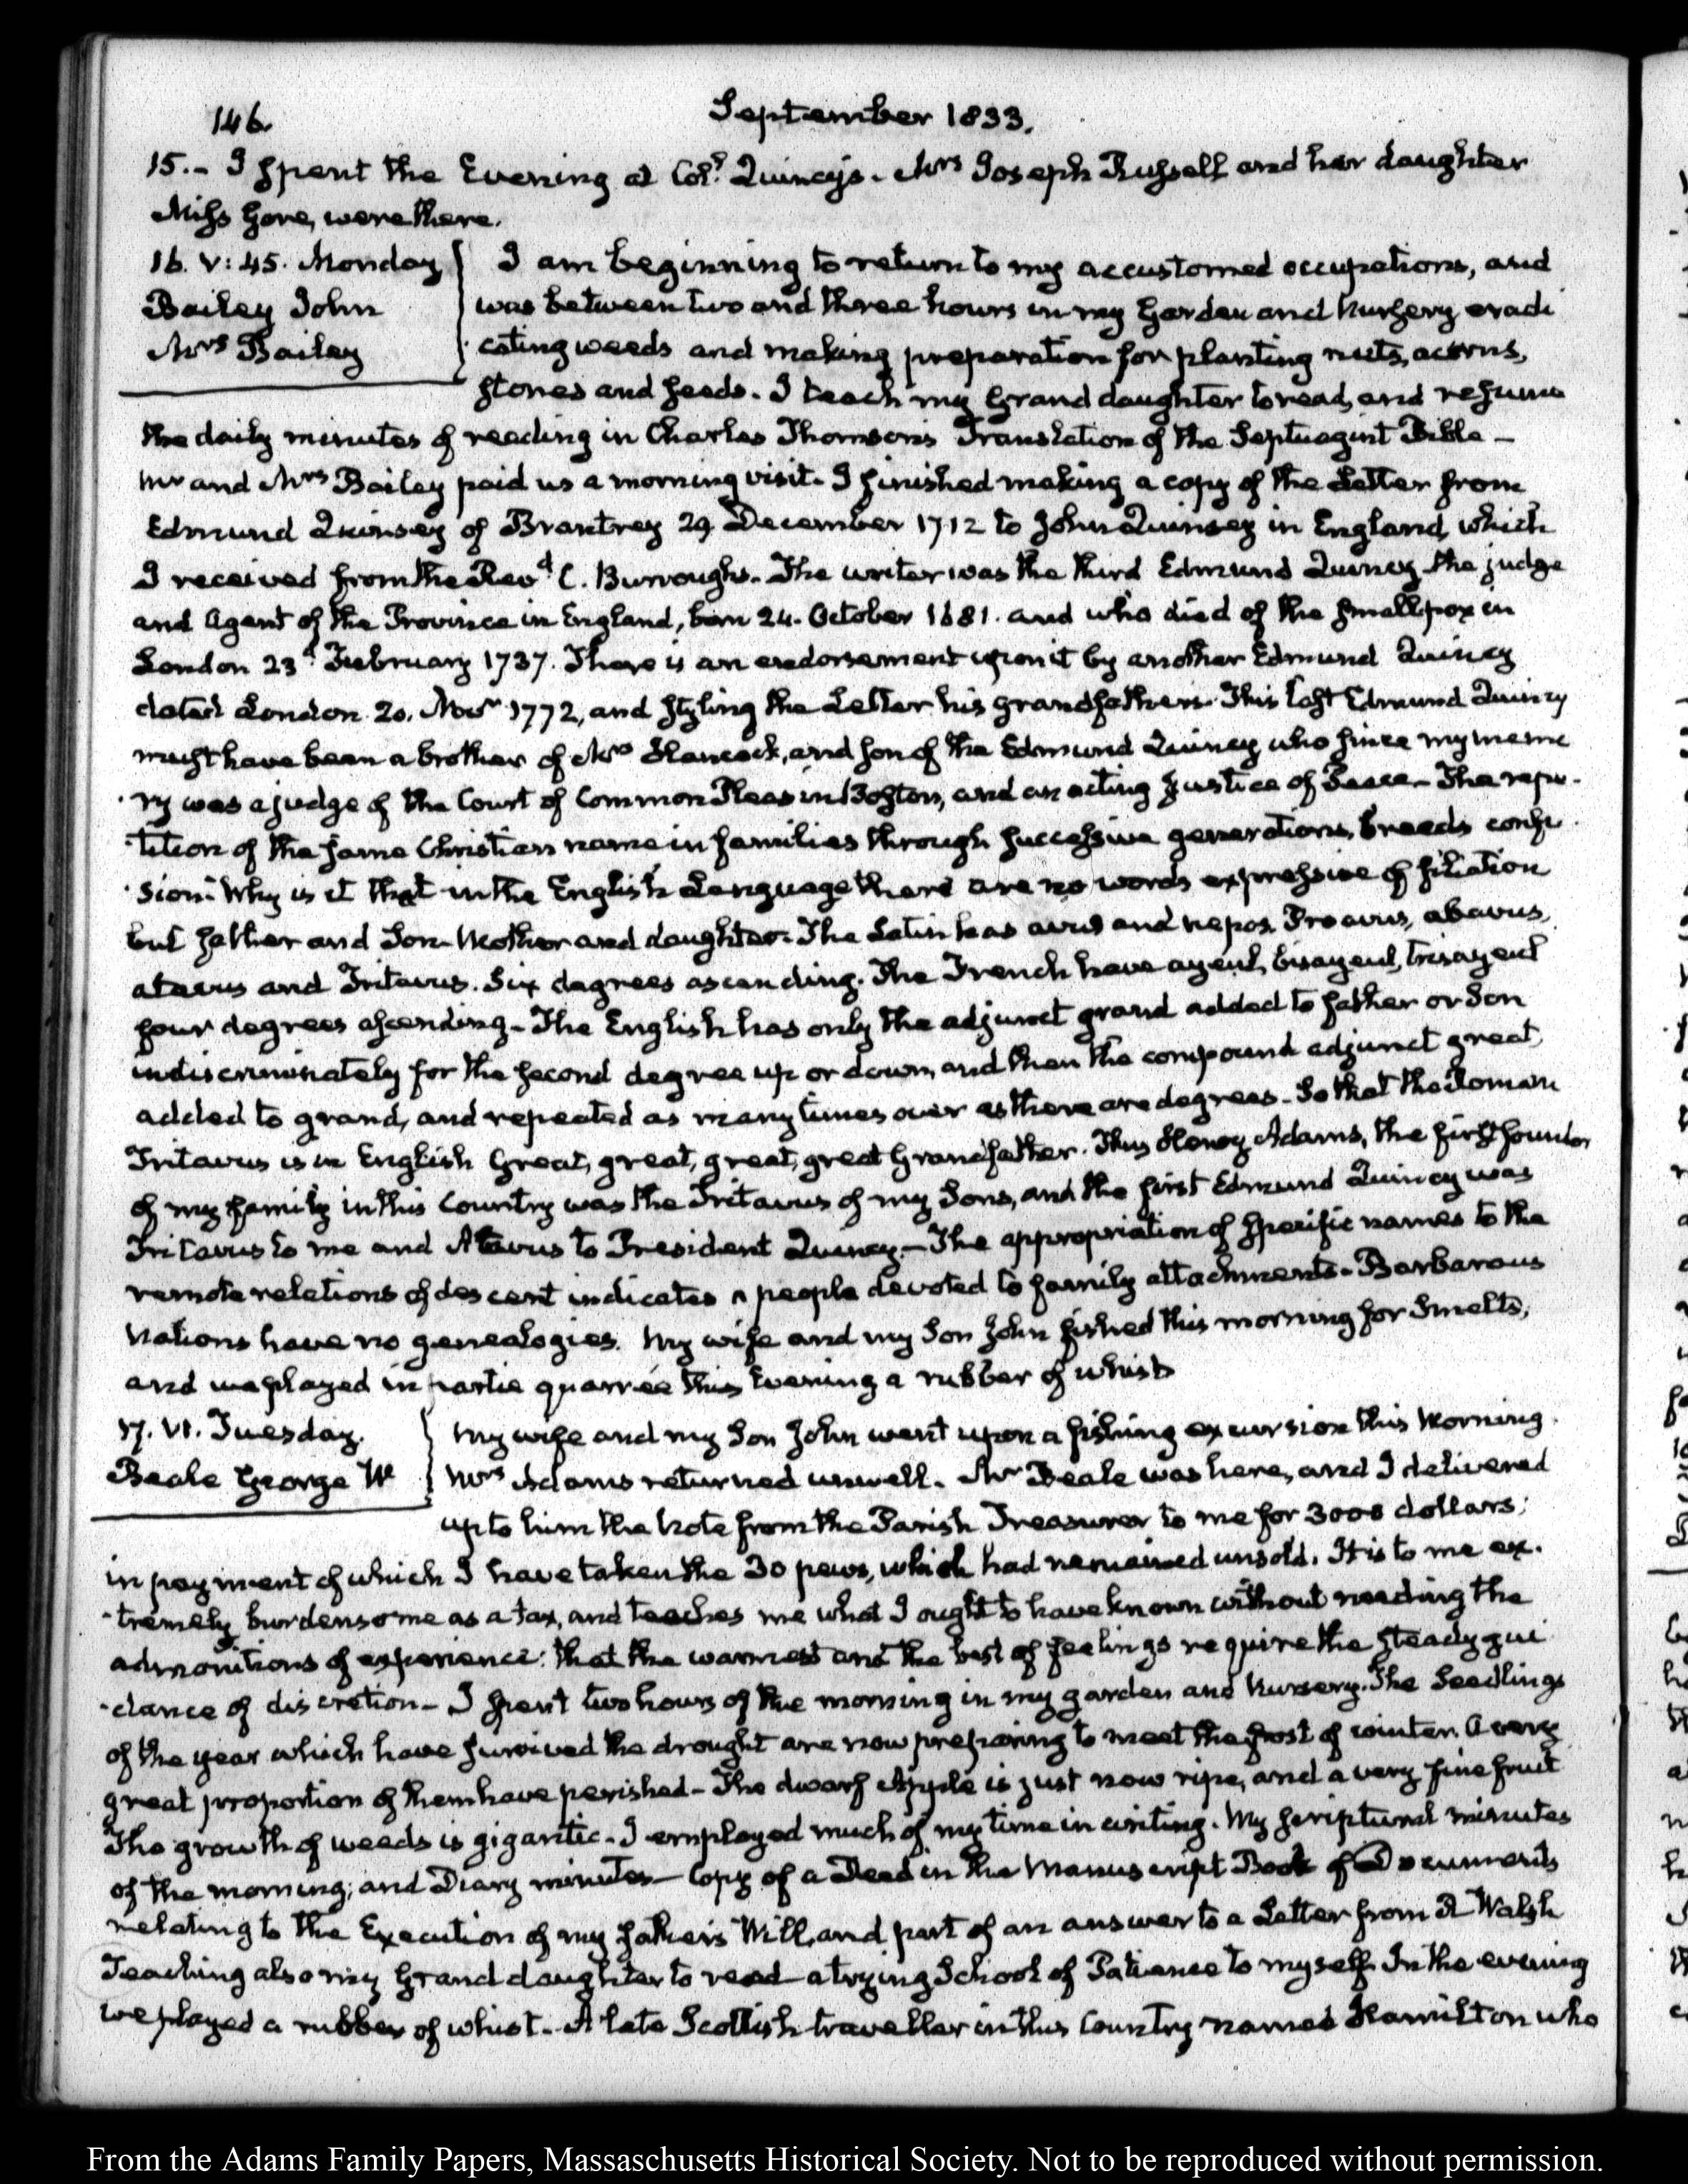 146.
September 1833.
15.- I spent the Evening at Col.l Quincy's. Mrs Joseph Russell and her daughter
Miss Gore, were there.
16. V:45. Monday
Bailey John
Mrs Bailey
I am beginning to return to my accustomed occupations, and
was between two and three hours in my Garden and Nursery eradi
cating weeds and making preparation for planting nuts, acorns,
stones and seeds. I teach my Grand daughter to read, and resume
the daily minutes of reading in Charles Thomson's Translation of the Septuagint Bible -
Mr and Mrs Bailey paid us a morning visit. I finished making a copy of the Letter from
Edmund Quinsey of Brantrey 29 December 1712 to John Quinsey in England, which
I received from the Revd C. Burroughs. The writer was the third Edmund Quincy the judge
and Agent of the Province in England, born 24. October 1681. and who died of the smallpox in
London 23d February 1737. There is an endorsement upon it by another Edmund Quincy
dated London 20. Novr 1772, and styling the Letter his grandfather's. This last Edmund Quincy
must have been a brother of Mrs Hancock, and son of the Edmund Quincy who since my memo
-ry was a judge of the Court of Common Pleas in Boston, and an acting Justice of Peace - The repe-
tition of the same Christian name in families through successive generations, breeds confu-
-sion. Why is it that in the English Language there are no words expressive of filiation
but father and Son. Mother and daughter. The Latin has avus and nepos. Proavus, abavus,
atavus and Tritavus. Six degrees ascending. The French have ayeul, bisayeul, trisayeul
four degrees ascending - The English has only the adjunct grand added to father or Son
indiscriminately for the second degree up or down, and then the compound adjunct great,
added to grand, and repeated as many times over as there are degrees. So that the Roman
Tritavus is in English Great, great, great, great Grandfather. Thus Henry Adams, the first founder
of my family in this Country was the Tritavus of my Sons, and the first Edmund Quincy was
Tritavus to me and Atavus to President Quincy. - The appropriation of specific names to the
remote relations of descent indicates a people devoted to family attachments. Barbarous
Nations have no genealogies. My wife and my Son John fished this morning for Smelts,
and we played in partie quarrée this Evening a rubber of whist
17. VI. Tuesday.
Beale George W
My wife and my Son John went upon a fishing excursion this Morning.
Mrs Adams returned unwell. Mr Beale was here, and I delivered
up to him the Note from the Parish Treasurer to me for 3000 dollars;
in payment of which I have taken the 30 pews, which had remained unsold. It is to me ex-
-tremely burdensome as a tax, and teaches me what I ought to have known without needing the
admonitions of experience: that the warmest and the best of feelings require the steady gui
-dance of discretion - I spent two hours of the morning in my garden and Nursery. The Seedlings
of the year which have survived the drought are now preparing to meet the frost of winter. A very
great proportion of them have perished - The dwarf Apple is just now ripe, and a very fine fruit
The growth of weeds is gigantic. I employed much of my time in writing. My scriptural minutes
of the morning; and Diary minutes - Copy of a Deed in the Manuscript Book of Documents
relating to the Execution of my father's Will, and part of an answer to a Letter from R Walsh
Teaching also my Grand daughter to read - a trying School of Patience to myself. In the evening
we played a rubber of whist. A late Scottish traveller in this Country named Hamilton who
From the Adams Family Papers, Massachusetts Historical Society. Not to be reproduced without permission.